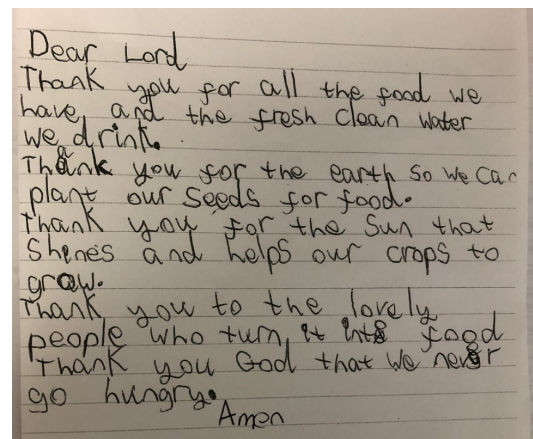 Dear Lord
Thank you for all the food we
have and the fresh clean water
we drink.
Thank you for the earth so we can
plant our seeds for food.
Thank you for the Sun that
Shines and helps our crops to
grow.
Thank you to the lovely
people who turn it into food
Thank you God that we never
go hungry.
Amen